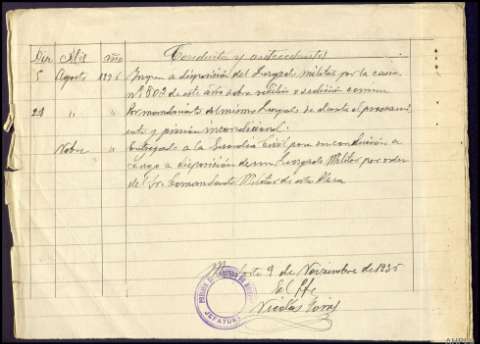 Día Mes año Conducta y antecedentes
5 Agosto 1936 Ingresa a disposición del Juzgado militar por la causa
nº 802 de este año sobre rebelión o sedición
24 " " Por mandamiento del mismo Juzgado se decreta el procesami
ento y prisión incondicional.
Nobre " Entregado a la Guardia Civil para su conducción a
a disposición de un Juzgado Militar por orden
del Sr. Comandante Militar de esta Plaza
9 de Noviembre de 1936
El Jefe
Nicolás
JEFATURA